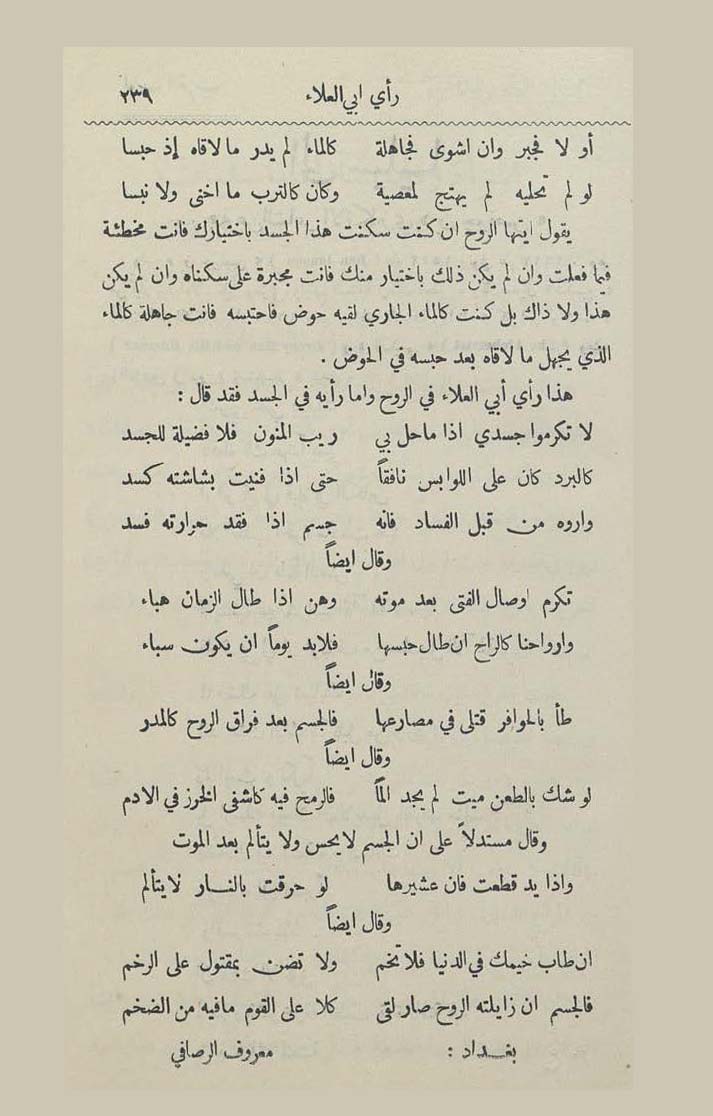 رأي ابي العلاء ٢٣٩
أو لا فجبر وان اشوى فجاهلة كالماء لم يدر ما لاقاه إذ حبسا
لو لم تحليه لم يهتج لمعصية وكان كالترب ما اخنى ولا نبسا
يقول ايتها الروح ان كنت سكنت هذا الجسد باختيارك فانت مخطئة
فيما فعلت وان لم يكن ذلك باختيار منك فانت مجبرة على سكناه وان لم يكن
هذا ولا ذاك بل كنت كالماء الجاري لقيه حوض فاحتبسه فانت جاهلة كالماء
الذي يجهل ما لاقاه بعد حبسه في الحوض .
هذا رأي أبي العلاء في الروح واما رأيه في الجسد فقد قال :
لا تكرموا جسدي اذا ما حل بي ريب المنون فلا فضيلة للجسد
كالبرد كان على اللوابس نافقاً حتى اذا فنيت بشاشته كسد
واروه من قبل الفساد فانه جسم اذا فقد حرارته فسد
وقال ايضاً
تكرم اوصال الفتى بعد موته وهن اذا طال الزمان هباء
وارواحنا كالراح ان طال حبسها فلابد يوماً ان يكون سباء
وقال ايضاً
طأ بالحوافر قتلى في مصارعها فالجسم بعد فراق الروح كالمدر
وقال ايضاً
لو شك بالطعن ميت لم يجد الماً فالرمح فيه كاشفى الخرز في الادم
وقال مستدلاً على ان الجسم لايحس ولا يتألم بعد الموت
واذا يد قطعت فان عشيرها لو حرقت بالنار لايتألم
وقال ايضاً
ان طاب خيمك في الدنيا فلا تخم ولا تضن بمقتول على الرخم
فالجسم ان زايلته الروح صار لقى كلا على القوم مافيه من الضخم
بغداد : معروف الرصافي